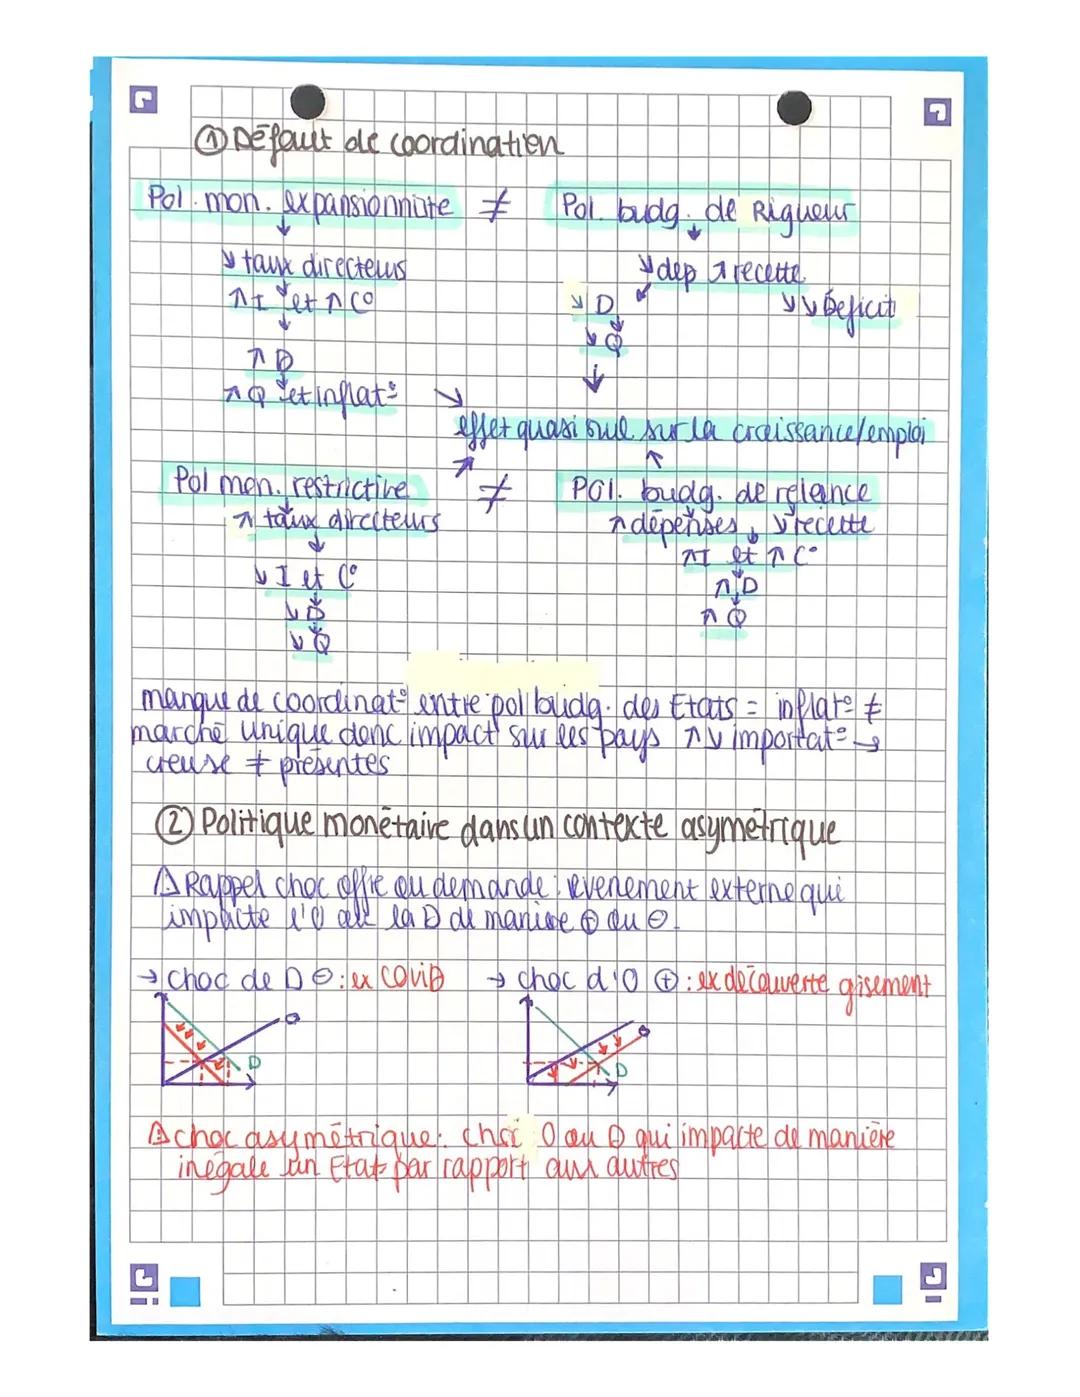 ① Défault de coordination
Pol. mon. expansionniste ≠ Pol. budg. de Rigueur
↓ ↓
↘ taux directeurs ↘ dep ↗ recette
↗ I et ↗ C° ↘ D ↘↘ Déficit
↗ D ↘ Q
↗ Q et inflat°
effet quasi nul sur la croissance/emploi
Pol mon. restrictive ≠ Pol. budg. de relance
↗ taux directeurs ↗ dépenses, ↘ recette
↘ I et C° ↗ I et ↗ C°
↘ D ↗ D
↘ Q ↗ Q
manque de coordinat° entre pol budg. des Etats = inflat° ≠
marché unique donc impact sur les pays ↗↘ importat° →
creuse ≠ présentes
② Politique monétaire dans un contexte asymétrique
⚠ Rappel choc offre ou demande : evenement externe qui
impacte l'O ou la D de manière ⊕ ou ⊖.
→ choc de D ⊖ : ex COVID → choc d'O ⊕ : ex découverte gisement
O O
D D
⚠ choc asymétrique : choc O ou D qui impacte de manière
inégale un Etat par rapport aux autres